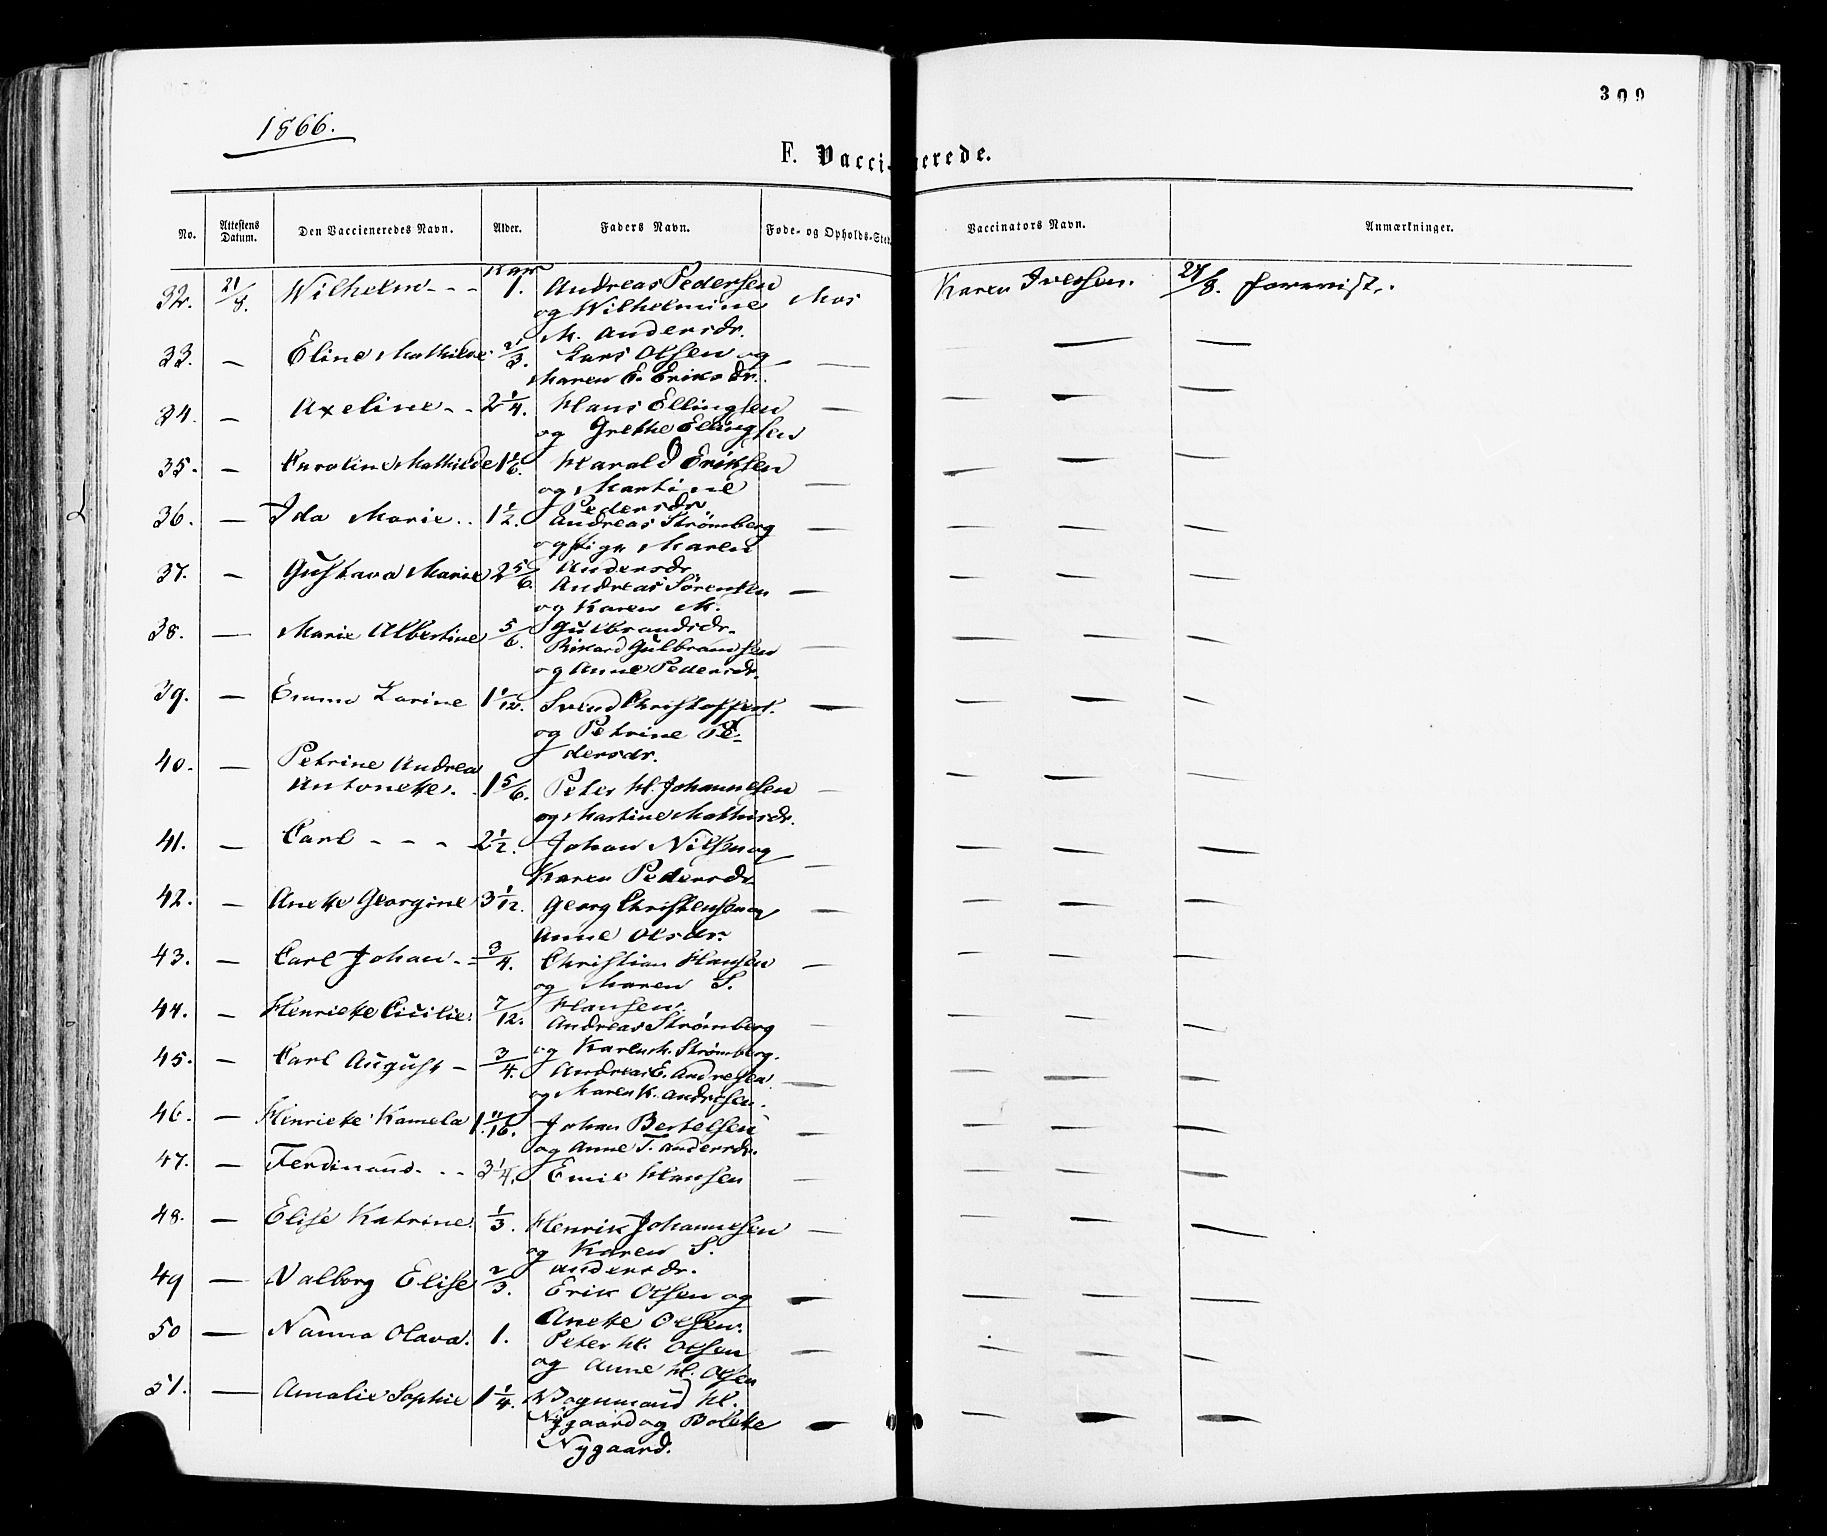 309
1866.
F. Vaccienerede.
No. Attestens Datum. Den Vaccieneredes Navn. Alder. Faders Navn. Føde- og Opholds-Sted Vaccinators Navn. Anmærkninger.
32. 21/8. Wilhelm - - 1. Andreas Pedersen Mos Karen Iversen. 21/8. forevist.
og Wilhelmine
M. Andersdr.
33. — Eline Mathilde 2/3. Lars Olsen og — — — —
Maren E. Eriksdr.
34. — Axeline - - 2 1/4. Hans Ellingsen — — — —
og Grethe Ellingsen
35. — Caroline Mathilde 1 1/6. Harald Eriksen — — — —
og Martine
Pedersdr.
36. — Ida Marie .. 1 1/2. Andreas Strømberg — — — —
og Maren
Andersdr.
37. — Gustava Marie 2 5/6. Andreas Sørensen — — — —
og Karen M.
Gulbrandsdr.
38. — Marie Albertine 5/6. Rikard Gulbransen — — — —
og Anne Pedersdr.
39. — Emma Karine 1 1/12. Svend Christoffers. — — — —
og Petrine Pe-
dersdr.
40. — Petrine Andrea
Antonette. 1 5/6. Peter H. Johannesen — — — —
og Martine Mathisdr.
41. — Carl - - - 2 1/2. Johan Nilsen og — — — —
Karen Pedersdr.
42. — Anette Georgine 3 1/12. Georg Christensen og — — — —
Anne Olsdr.
43. — Carl Johan - 3/4. Christian Hansen — — — —
og Maren S.
Hansen.
44. — Henriette Cicilie. 7/12. Andreas Strømberg — — — —
og Karen M. Strømberg.
45. — Carl August - 3/4. Andreas E. Andresen — — — —
og Maren K. Andresen.
46. — Henriette Kamela 1 11/16. Johan Bertelsen — — — —
og Anne T. Andersdr.
47. — Ferdinand. - - 3 1/4. Emil Hansen — — — —
48. — Elise Katrine 1/3. Henrik Johannesen — — — —
og Karen S.
Andersdr.
49 — Valborg Elise 2/3. Erik Olsen og — — — —
Anette Olsen.
50 — Nanna Olava. 1. Peter H. Olsen — — — —
og Anne H. Olsen
51. — Amalie Sophie 1 1/4. H. — — — —
Nygaard og Bolette
Nygaard.